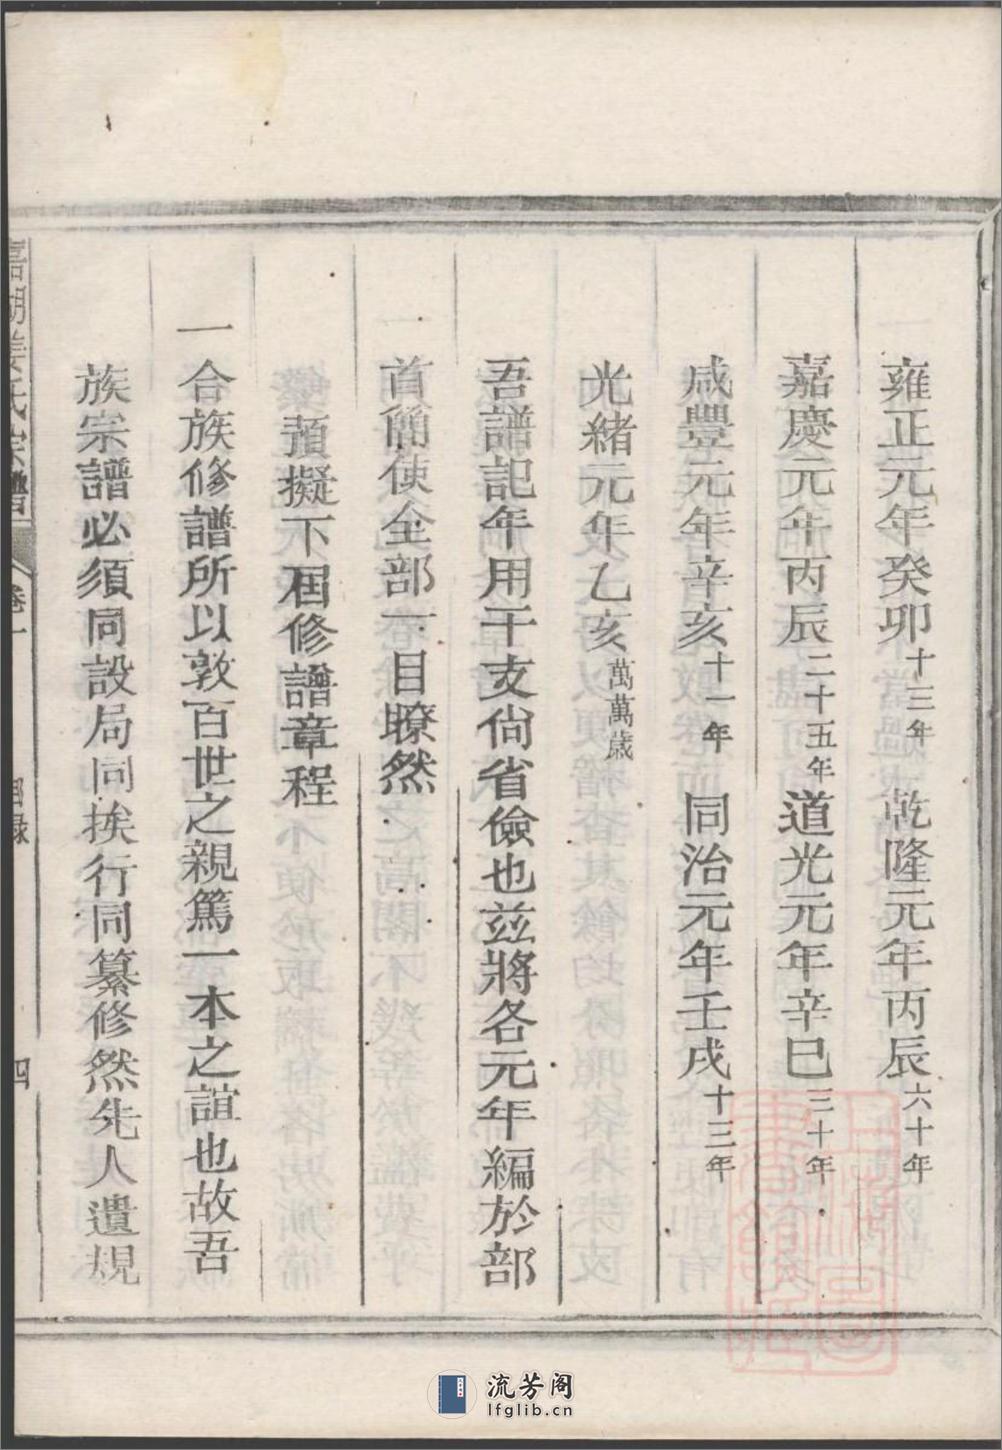 雍正元年癸卯十三年 乾隆元年丙辰六十年
嘉慶元年丙辰二十五年 道光元年辛巳三十年
咸豐元年辛亥十一年 同治元年壬戌十三年
光緒元年乙亥萬萬歲
吾譜記年用干支尙省儉也並將各元年編於部
首簡使全部一目瞭然
預擬下屆修譜章程
一 合族修譜所以敦百世之親篤一本之誼也故吾
族宗譜必須同設局同挨行同纂修然先人遺規
湖姜氏宗譜 卷一 目錄 四
流芳阁
lfglib.cn